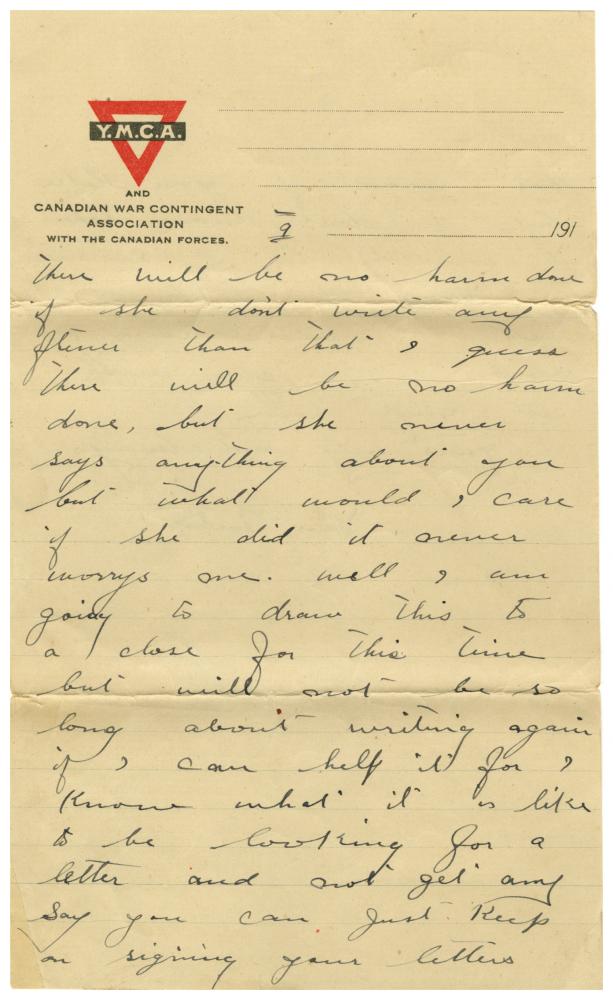 Y.M.C.A.
AND
CANADIAN WAR CONTINGENT
ASSOCIATION
WITH THE CANADIAN FORCES.
9
191
There will be no harm done
if she don't write any
ftener than that I guess
there will be no harm
done, but she never
says anything about you
but what would I care
if she did it never
worrys me. well I am
going to draw this to
a close for this time
but will not be so
long about writing again
if I can help it for I
know what it is like
to be looking for a
letter and not get any
Say you can just keep
on signing your letters